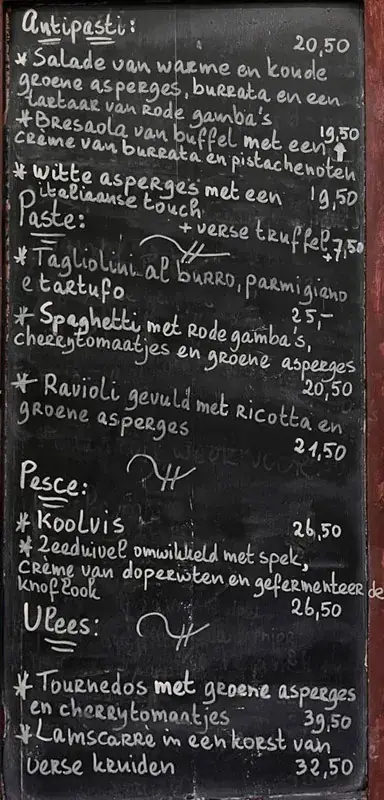 Antipasti:
20,50
* Salade van warme en koude
groene asperges, burrata en een
tartaar van rode gamba's
* Bresaola van buffel met een 19,50
crème van burrata en pistachenoten
* Witte asperges met een 19,50
italiaanse touch
+ verse truffel +7,50
Paste:
* Tagliolini al burro, parmigiano
e tartufo 25,-
* Spaghetti met rode gamba's,
cherrytomaatjes en groene asperges
20,50
* Ravioli gevuld met ricotta en
groene asperges 21,50
Pesce:
* Koolvis 26,50
* Zeeduivel omwikkeld met spek,
crème van doperwten en gefermenteerde
knoflook 26,50
Vlees:
* Tournedos met groene asperges
en cherrytomaatjes 39,50
* Lamscarre in een korst van
verse kruiden 32,50